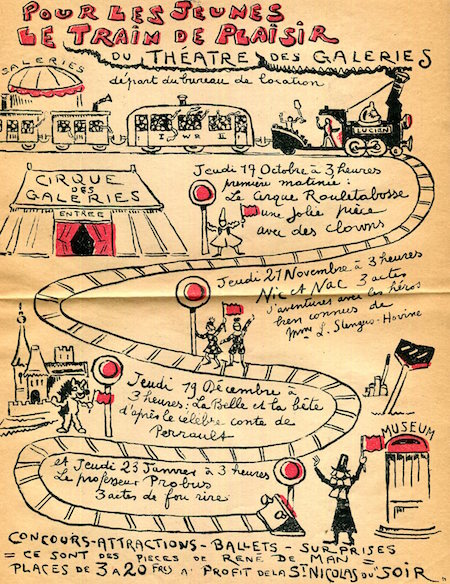 POUR LES JEUNES
LE TRAIN DE PLAISIR
DU THÉATRE DES GALERIES
GALERIES
départ du bureau de location
I WR II
LUCIEN
CIRQUE
DES
GALERIES
ENTREE
Jeudi 19 Octobre à 3 heures
première matinée:
Le Cirque Rouletabosse
une jolie pièce
avec des clowns
Jeudi 21 Novembre à 3 heures
Nic et Nac 3 actes
d'aventures avec les héros
bien connus de
Mme L. Slengus-Havine
Jeudi 19 Décembre à
3 heures: La Belle et la bête
d'après le célèbre conte de
Perrault
MUSEUM
et Jeudi 23 Janvier à 3 heures
Le professeur Probus
3 actes de fou rire
CONCOURS-ATTRACTIONS-BALLETS-SURPRISES
= CE SONT DES PIECES DE RENÉ DE MAN =
PLACES DE 3 A 20 FRS AU PROFIT DE LA ST NICOLAS DU "SOIR"